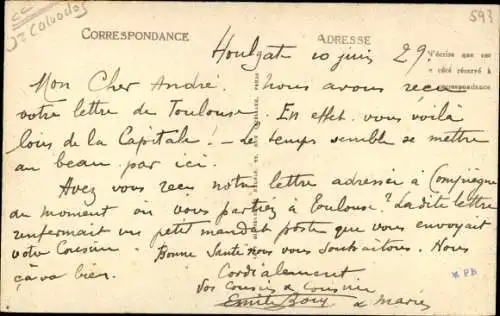 Calvados
593
CORRESPONDANCE
ADRESSE
Houlgate 10 juin 29.
N'écrire que sur
le côté réservé à
correspondance
Mon Cher André. Nous avons reçu
votre lettre de Toulouse. En effet vous voilà
loin de la Capitale! - Le temps semble se mettre
au beau par ici.
Avez vous reçu notre lettre adressée à Compiègne
au moment où vous partiez à Toulouse? La dite lettre
renfermait un petit mandat poste que vous envoyait
votre Cousine. Bonne Santé nous vous souhaitons. Nous
ça va bien.
Cordialement
Vos Cousin & Cousine
Emile & Marie
* PB